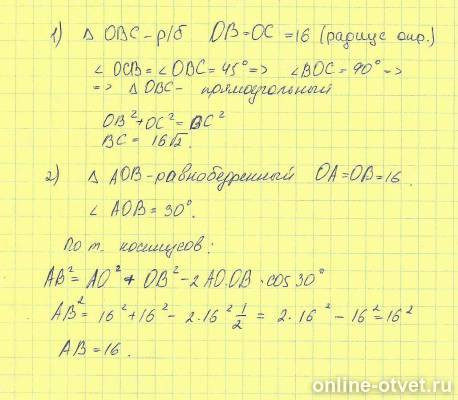 1) Δ OBC - р/б OB = OC = 16 (радиус окр.)
∠ OCB = ∠ OBC = 45° => ∠ BOC = 90° =>
=> Δ OBC - прямоугольный
OB² + OC² = BC²
BC = 16√2.
2) Δ AOB - равнобедренный OA = OB = 16.
∠ AOB = 30°.
По т. косинусов:
AB² = AO² + OB² - 2AO·OB·cos 30°
AB² = 16² + 16² - 2·16² 1/2 = 2·16² - 16² = 16²
AB = 16.
online-otvet.ru